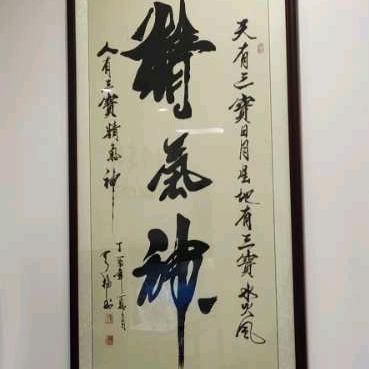 天有三寶日月星地有三寶水火風
精氣神
人有三寶精氣神